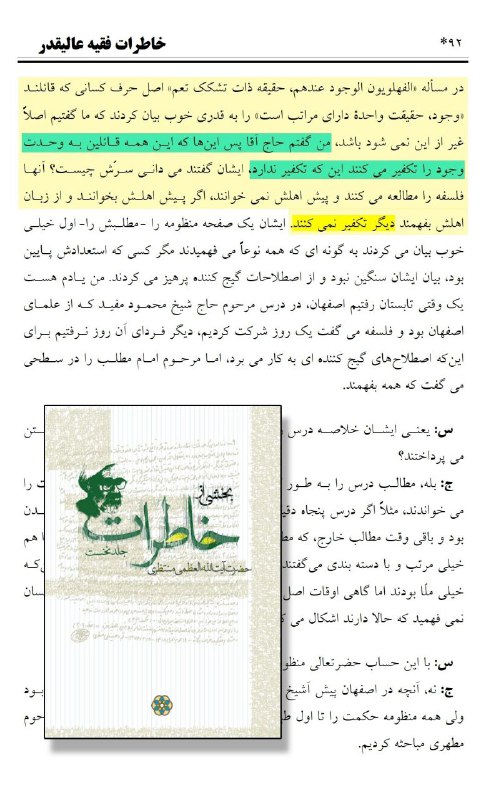 خاطرات فقیه عالیقدر
۹۲*
در مسأله «الفهلویون الوجود عندهم، حقیقه ذات تشکک تعم» اصل حرف کسانی که قائلند
«وجود، حقیقت واحدهٔ دارای مراتب است» را به قدری خوب بیان کردند که ما گفتیم اصلاً
غیر از این نمی شود باشد، من گفتم حاج آقا پس این‌ها که این همه قائلین به وحدت
وجود را تکفیر می کنند این که تکفیر ندارد، ایشان گفتند می دانی سرّش چیست؟ آنها
فلسفه را مطالعه می کنند و پیش اهلش نمی خوانند، اگر پیش اهلش بخوانند و از زبان
اهلش بفهمند دیگر تکفیر نمی کنند. ایشان یک صفحه منظومه را -مطلبش را- اول خیلی
خوب بیان می کردند به گونه ای که همه نوعاً می فهمیدند مگر کسی که استعدادش پایین
بود، بیان ایشان سنگین نبود و از اصطلاحات گیج کننده پرهیز می کردند. من یادم هست
یک وقتی تابستان رفتیم اصفهان، در درس مرحوم حاج شیخ محمود مفید که از علمای
اصفهان بود و فلسفه می گفت یک روز شرکت کردیم، دیگر فردای آن روز نرفتیم برای
این‌که اصطلاح‌های گیج کننده ای به کار می برد، اما مرحوم امام مطلب را در سطحی
می گفت که همه بفهمند.
س: یعنی ایشان خلاصه درس و
تن
می پرداختند؟
ج: بله، مطالب درس را به طور
ت را
می خواندند، مثلاً اگر درس پنجاه دقی
دن
بود و باقی وقت مطالب خارج، که مط
ا هم
خیلی مرتب و با دسته بندی می‌گفتند
ی‌که
خیلی ملّا بودند اما گاهی اوقات اصل
سان
نمی فهمید که حالا دارند اشکال می ک
س: با این حساب حضرتعالی منظو
ج: نه، آنچه در اصفهان پیش آشیخ
بود
ولی همه منظومه حکمت را تا اول ط
حوم
مطهری مباحثه کردیم.
بخشی از
خاطرات
جلد نخست
حضرت آیت‌الله العظمی منتظری